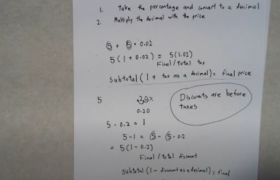 1. Take the percentage and convert to a decimal
2. Multiply the decimal with the price
5 + 5 = 0.02
5(1 + 0.02) = 5(1.02)
Final/total tax
Subtotal (1 + tax as a decimal) = final price
5 20%
0.20
Discounts are before taxes
5 - 0.2 = 1
5 - 1 = 5 - 5 - 0.2
= 5(1 - 0.2)
Final/total discount
Subtotal (1 - discount as a decimal) = final